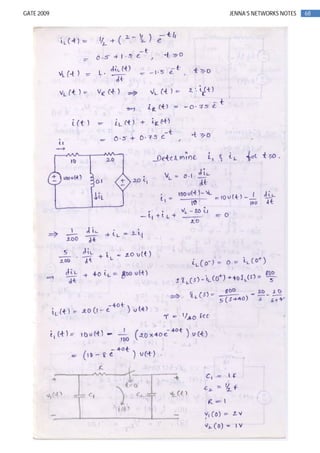 GATE 2009
JENNA'S NETWORKS NOTES 60
iL(t) = 1/2 + (2 - 1/2) e^-t/1
= 0.5 + 1.5 e^-t , t≥0
VL(t) = L. diL(t)/dt = -1.5 e^-t , t≥0
VL(t) = VR(t) ⇒ VL(t) = 2. iR(t)
⇒ iR(t) = -0.75 e^-t
i(t) = iL(t) + iR(t)
= 0.5 + 0.75 e^-t , t≥0
i1
10 20
Determine i1 & iL for t≥0.
100u(t) 0.1 20i1
iL
VL = 0.1 diL/dt
i1 = (100u(t)-VL)/10 = 10u(t) - 1/100 diL/dt
-i1 + iL + (VL-20i1)/20 = 0
⇒ 1/200 diL/dt + iL = 2i1
5/200 diL/dt + iL = 20u(t)
iL(0-) = 0 = iL(0+)
⇒ diL/dt + 40iL = 800u(t)
SIL(s) - iL(0+) + 40IL(s) = 800/s
⇒ IL(s) = 800/(s(s+40)) = 20/s - 20/(s+40)
iL(t) = 20(1 - e^-40t) u(t)
T = 1/40 sec
i1(t) = 10u(t) - 1/100 (20x40 e^-40t) u(t)
= (10 - 8 e^-40t) u(t)
R
t=0
V1(t) C1 C2 V2(t)
i(t)
C1 = 1F
C2 = 1/2 F
R = 1
V1(0) = 2V
V2(0) = 1V